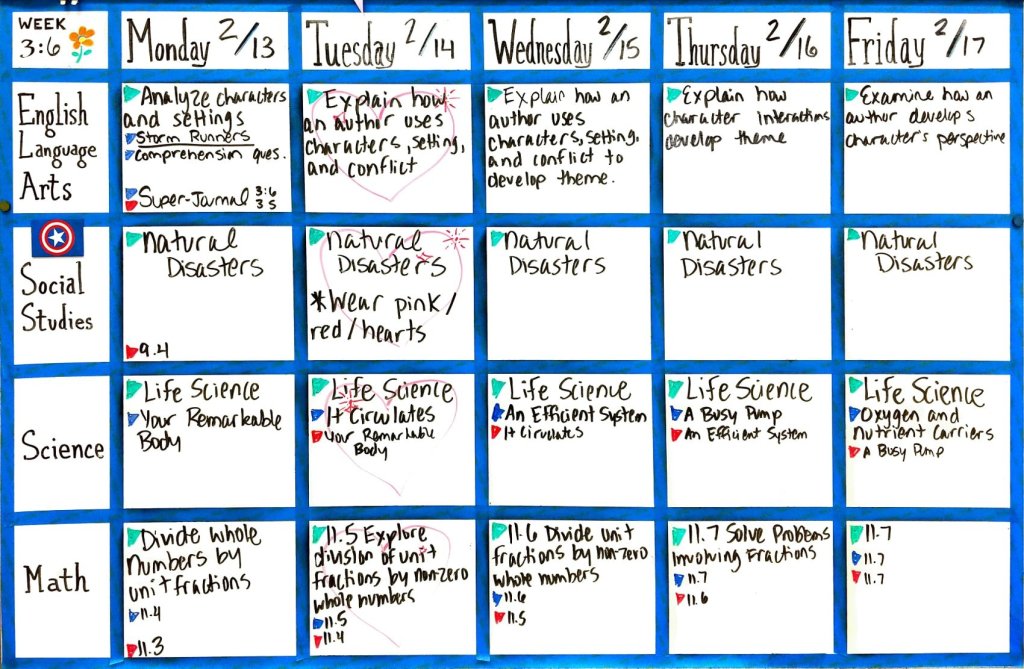 WEEK
3:6
Monday 2/13
Tuesday 2/14
Wednesday 2/15
Thursday 2/16
Friday 2/17
English
Language
Arts
Analyze characters
and settings
Storm Runners
Comprehension ques.
Super-Journal 3:6
3:5
Explain how
an author uses
characters, setting,
and conflict
Explain how an
author uses
characters, setting,
and conflict to
develop theme.
Explain how
character interactions
develop theme
Examine how an
author develops
character's perspective
Social
Studies
Natural
Disasters
9.4
Natural
Disasters
*Wear pink/
red/hearts
Natural
Disasters
Natural
Disasters
Natural
Disasters
Science
Life Science
Your Remarkable
Body
Life Science
It Circulates
Your Remarkable
Body
Life Science
An Efficient System
It Circulates
Life Science
A Busy Pump
An Efficient System
Life Science
Oxygen and
nutrient carriers
A Busy Pump
Math
Divide whole
numbers by
unit fractions
11.4
11.3
11.5 Explore
division of unit
fractions by non-zero
whole numbers
11.5
11.4
11.6 Divide unit
fractions by non-zero
whole numbers
11.6
11.5
11.7 Solve Problems
involving Fractions
11.7
11.6
11.7
11.7
11.7